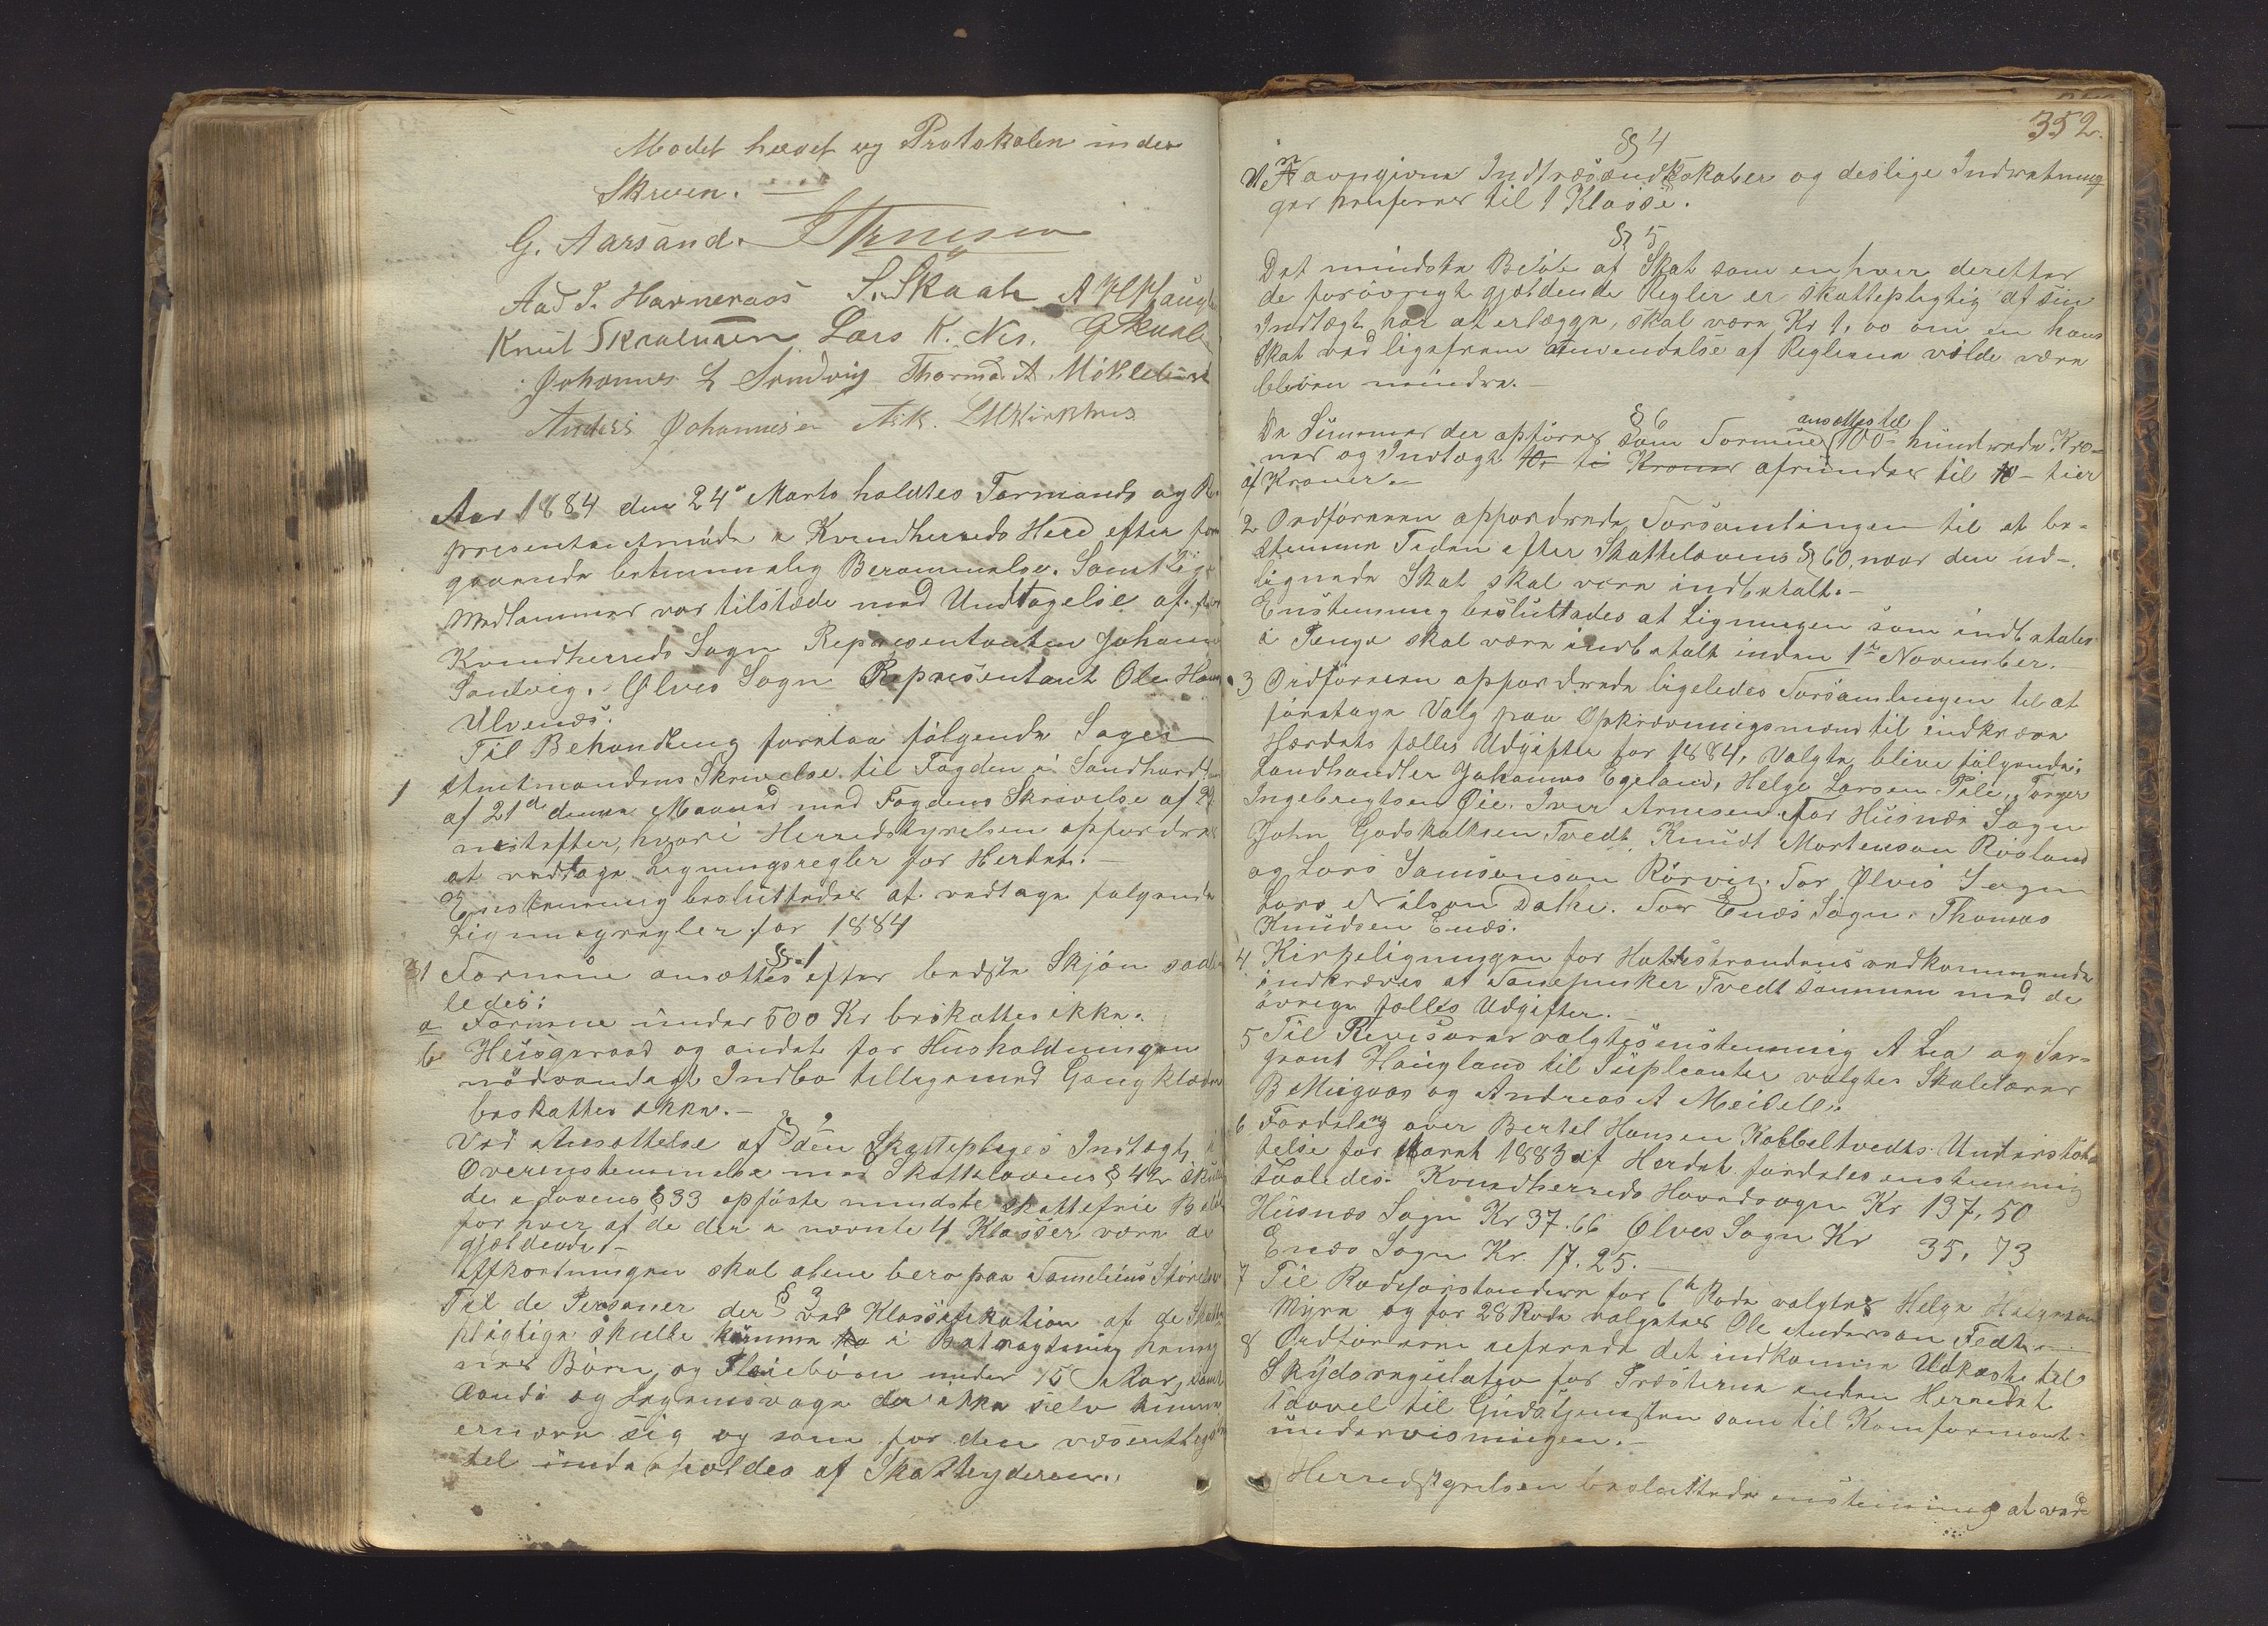 Modet hævet og Protokolen under
Skreven. —
G. Aarsand.
Aad T. Havneraas S. Skaale A H Haugl
Knut Skaaluren Lars K. Nes. G Skaale
Johannes L Sandvig Thormod A. Møklebust
Anders Johannesen Ask.
Aar 1884 den 24de Marts holdtes Formands og Re-
presentantmøde i Kvindherreds Herred efter fore
gaaende betimmelig Berammelse. Samtlige
Medlemmer var tilstæde med Undtagelse af for
Kvindherreds Sogn Representanten Johannes
Sandvig. Ølves Sogn Representant Ole Hans
Ulvenæs.
Til Behandling foretoges følgende Sager
1 Amtmandens Skrivelse til Fogden i Sundhordl
af 21de denne Maaned med Fogdens Skrivelse af 22
næstefter, hvori Herredstyrelsen opfordres
at vedtage Ligningsregler for Herdet. —
Enstemmig besluttedes at vedtage følgende
Ligningsregler for 1884
§ 1
1 Formue ansættes efter bedste Skjøn saale
ledes:
a Formue under 500 Kr beskattes ikke.
b Husgeraad og andet for Husholdningen
nødvendigt Indbo tilligemed Gangklæder
beskattes ikke. —
§ 2
Ved Ansættelse af den Skattepligtiges Indtægt i
Overenstemmelse med Skattelovens § 42 skulle
de i Lovens § 33 opførte mindste skattefrie Beløb
for hver af de der i nævnte 4 Klasser være de
gjældende. —
Affkortningen skal alene bero paa Familiens Størelse
§ 3
Til de Personer der ved Klassifikation af de Skatte
pligtige skulle komme i Betragtning henreg
nes Børn og Pleiebørn under 15 Aar, samt
Aands og Legemsvage der ikke selv kunne
ernære sig og som for den væsentligste
del underholdes af Skatteyderen.
352.
§ 4
Unavngivne Indtræsændtskaber og deslige Indretning
ger henføres til 1 Klasse.
§ 5
Det mindste Beløb af Skat som enhver derefter
de forøvrigt gjældende Regler er skattepligtig af sin
Indtægt har at erlægge, skal være Kr 1,00 om en hans
Skat ved ligefrem anvendelse af Reglerne vilde være
bleven mindre. —
§ 6
De Summer der opføres som Formue ansættes til 100 hundrede Kro-
ner og Indtægt 10. ti Kroner afrundes til 10 – tier
af Kroner. —
2 Ordføreren opfordrede Forsamlingen til at be-
stemme Tiden efter Skattelovens § 60, naar den ud-
lignede Skat skal være indbetalt. —
Enstemmig besluttedes at Ligningen som indbetales
i Penge skal være indbetalt inden 1ste November. —
3 Ordføreren opfordrede ligeledes Forsamlingen til at
foretage Valg paa Opkrævningsmænd til indkræve
Herdets fælles Udgifter for 1884, Valgte bleve følgende:
Landhandler Johannes Egeland, Helge Larsen Pile, Torger
Ingebregtsen Øie, Iver Arnesen. For Husnæs Sogn
John Godskalksen Tvedt, Knudt Mortenson Røsland
og Lars Samsonson Rørvig. For Ølves Sogn
Lars Nilson Dalke. For Enæs Sogn. Thomas
Knudsen Enæs.
4 Kirkeligningen for Hattestrandens vedkommende
indkræves af Lænsmansker Tvedt sammen med de
øvrige fælles Udgifter. —
5 Til Revisorer valgtes enstemmig A Lea og Ser-
geant Haugland til Supleanter valgtes Skolelærer
B Miegaas og Andreas A Meidell.
6 Fordeling over Bertel Hansen Kobbeltvedts Understøt-
telse for Aaret 1883 af Herdet fordeles enstemmig
saaledes. Kvindherreds Hovedsogn Kr 137,50
Husnæs Sogn Kr 37.66 Ølves Sogn Kr 35,73
Enæs Sogn Kr. 17.25. —
7 Til Rodeforstandere for 6te Rode valgtes Helge Helgeson
Myre og for 28 Rode valgtes Ole Anderson Fedt. —
8 Ordføreren refererede det indkomne Udkast til
Skydsregulativ for Præsterne inden Herredet
saavel til Gudstjenesten som til Konformant
undervisningen. —
Herredstyrelsen besluttede enstemmig at ved-